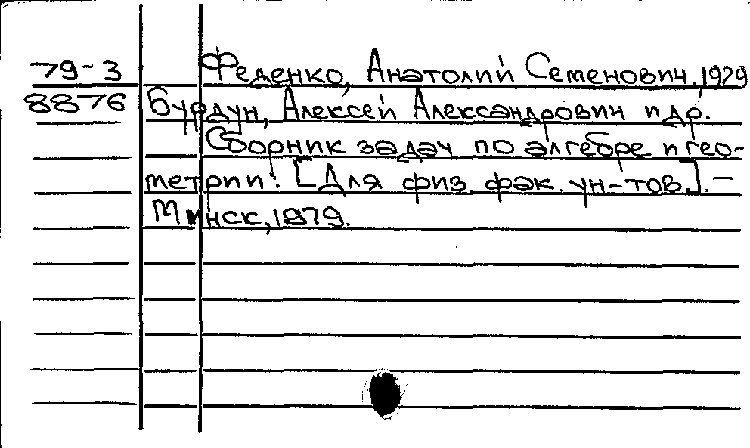 79-3 Феденко, Анатолий Семенович, 1929
8876 Бурдун, Алексей Александрович и др.
Сборник задач по алгебре и гео-
метрии: [Для физ. фак. ун-тов]. –
Минск, 1979.